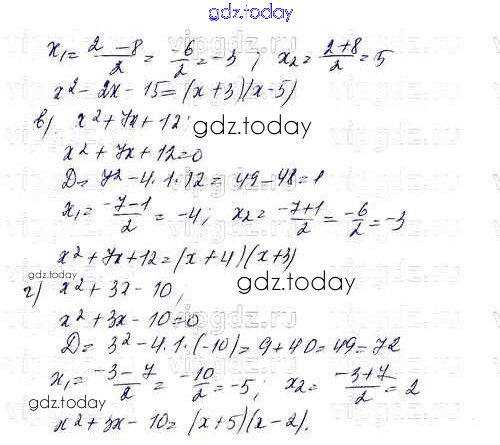 gdz.today
x₁ = (2 - 8)/2 = -6/2 = -3 ; x₂ = (2+8)/2 = 5
x² - 2x - 15 = (x + 3)(x - 5)
в) x² + 7x + 12;
gdz.today
x² + 7x + 12 = 0
D = 7² - 4·1·12 = 49 - 48 = 1
x₁ = (-7-1)/2 = -4; x₂ = (-7+1)/2 = -6/2 = -3
x² + 7x + 12 = (x + 4)(x + 3)
gdz.today
gdz.today
г) x² + 3x - 10;
x² + 3x - 10 = 0
D = 3² - 4·1·(-10) = 9 + 40 = 49 = 7²
x₁ = (-3 - 7)/2 = -10/2 = -5; x₂ = (-3+7)/2 = 2
gdz.today
gdz.today
x² + 3x - 10 = (x + 5)(x - 2).